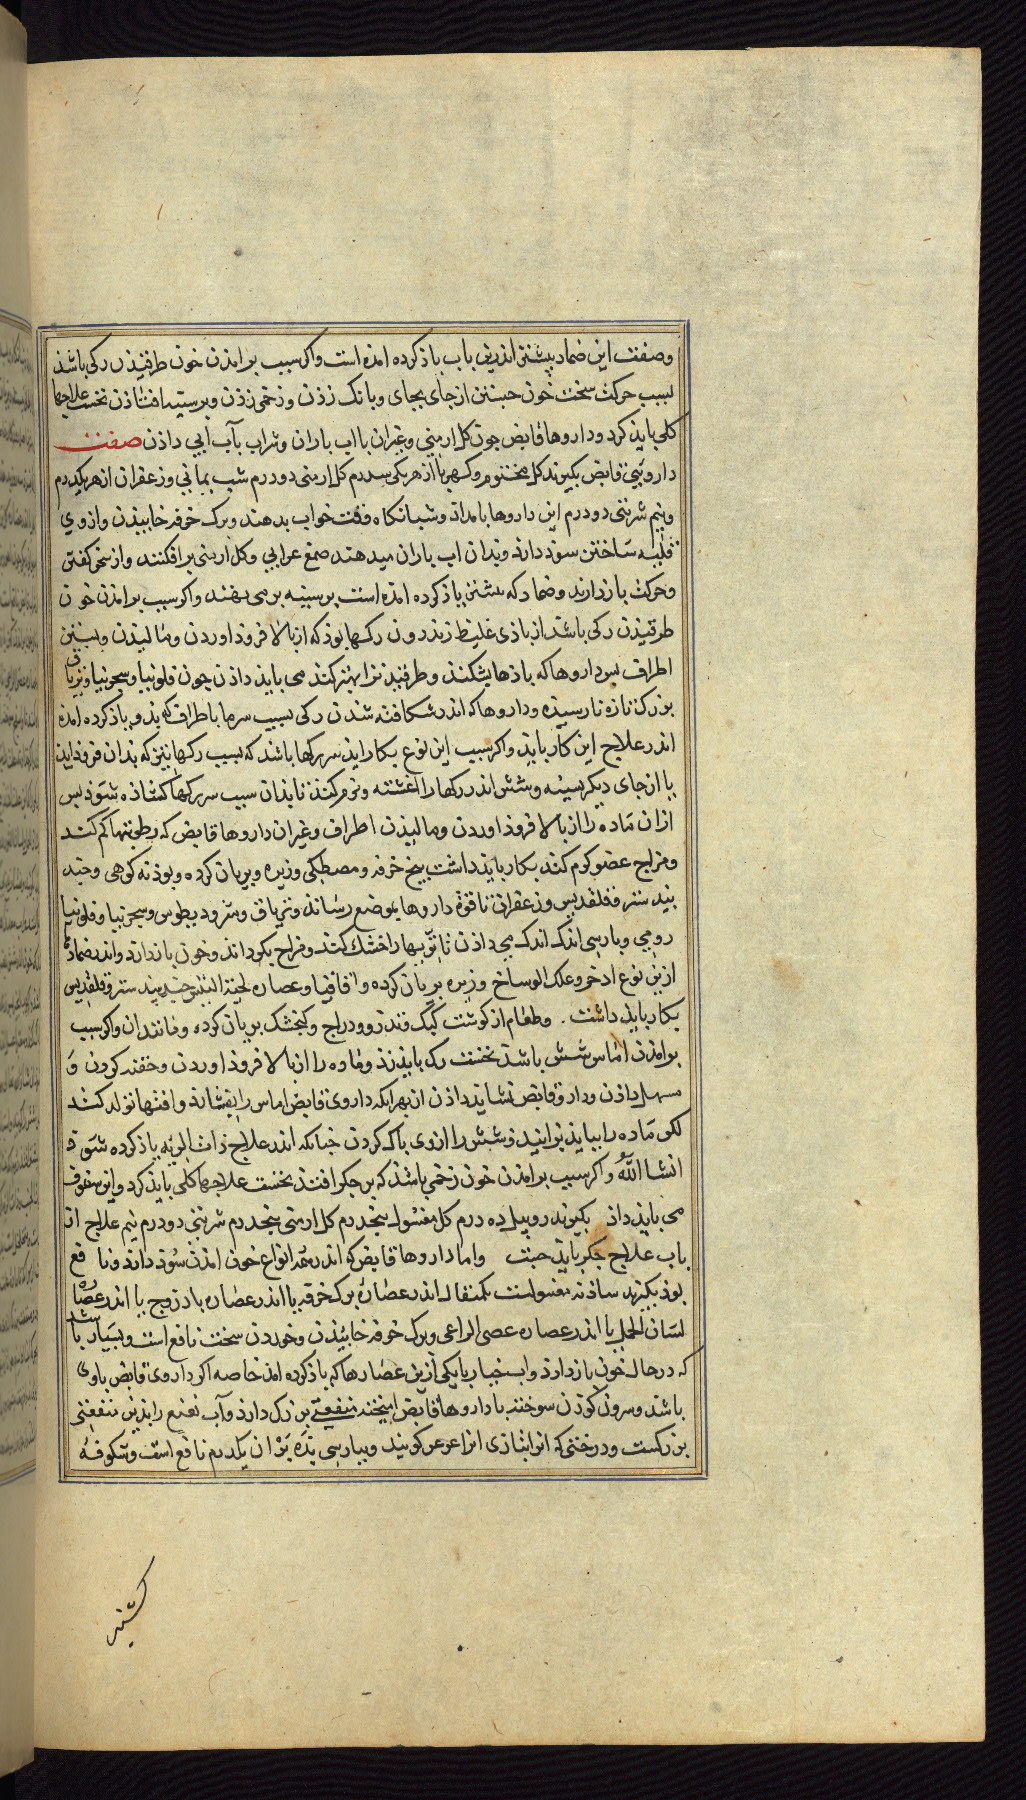 وصفت این ضماد پیشتر اندرین باب یاذ کرده امده است واکر سبب بر امذن خون طرقیذن رکی باشذ
بسبب حرکت سخت جون جستن از جای بجای وبانک زذن وزخمی زذن وبر ستیر افتاذن نخست علاجها
کلی بایذ کرد وداروها قابض جون کل ارمنی وغیران با اب باران وشراب بآب ابی داذن صفت
داروی قابض بکیرند کل مختوم وکهربا از هر یکی سه درم کل ارمنی دو درم شب یمانی وزعفران از هر یکی درم
ونیم شربتی دو درم این داروها بامداد وشبانکاه وقت خواب بدهند وبرک خرفه خاییذن وازوی
قلیه ساختن سوذ دارذ وبذان اب باران میدهند صمغ عرابی وکل ارمنی برافکنند واز سخن کفتن
وحرکت باز دارند وضماد که پیشتر یاذ کرده امده است بر سینه بر می نهند واکر سبب بر امذن خون
طرقیذن رکی باشذ از باذی غلیظ اندرون رکها بوذ که از بالا فروذ اوردن ومالیذن وبستن
اطراف پس داروها که باذها بشکند وطرقیذن را بهتر کند می بایذ داذن چون فلونیا وسجزنیا وتریاق
بزرک تازه نارسیذه وداروها که اندر شکافته شدن رکی بسبب سرما باطراف که بذو یاذ کرده امده
اندر علاج این کار بایذ واکر سبب این نوع بکار ایذ سر رکها باشذ که بسبب رکها بتری که بذان فروذ ایذ
یا از جای دیکر بسینه وشش اندر رکها را اغشته ونرم کند تا بذان سبب سر رکها کشاذه شوذ پس
ازان ماده را از بالا فروذ اوردن ومالیذن اطراف وغیران داروها قابض که رطوبتها کم کند
ومزاج عضو کرم کند بکار بایذ داشت بیخ خرفه ومصطکی وزیره وبریان کرده وبوذنه کوهی وجند
بیدستر وقلقدیس وزعفران تا قوة داروها بموضع رساند وتریاق ومثرودیطوس وسجزنیا وفلونیا
رومی وپارسی اندک اندک می داذن تا تریها را خشک کند ومزاج بکرداند وخون بازدارد واندر ضمادها
ازین نوع اذخر وعلک الوساخ وزیره بریان کرده واقاقیا وعصاره لحیة التیس جند بیدستر وقلقدیس
بکار بایذ داشت. وطعام از کوشت کبک وتذرو ودراج وکنجشک بریان کرده ومانندان واکر سبب
بر امذن اماس شش باشذ نخست رک بایذ زذ وماده را از بالا فروذ اوردن وحقنه کردن و
مسهل داذن وداروة قابض نشایذ داذن از بهر انکه داروی قابض اماس را بفشارد وافتها تولد کند
لکن ماده را ببایذ برانید وشش را ازوی پاک کردن جنانکه اندر علاج ذات الریه یاذ کرده شوذ
انشا الله واکر سبب بر امذن خون زخمی باشذ که بر جکر افتذ نخست علاجها کلی بایذ کرد واین سفوف
می بایذ داذ بکیرند رویل ده درم کل مغسول پنجدرم کل ارمنی پنجدرم شربتی دو درم نیم علاج از
باب علاج جکر بایذ جست واما داروها قابض که اندر همه انواع خون امذن سوذ دارذ ونافع
بوذ بکیرند ساذنه مغسول یکمثقال اندر عصاره برک خرفه یا اندر عصاره باذروج یا اندر عصاره
لسان الحمل یا اندر عصاره عصی الراعی وبرک خرفه خاییذن وخوردن سخت نافع است وبسیار باشد
که در حال خون باز دارد واب خیار با یکی ازین عصارها که یاذ کرده امذ خاصه اکر داروی قابض باوی
باشد وسرون کوزن سوخته با داروها قابض امیخته منفعتی بزرک دارد وآب نعنع را بذین منفعتی
بزرکست ودرختی که انرا بتازی انرا عرعر کویند وبپارسی بذه بزان یکدرم نافع است وشکوفه
کشنیز